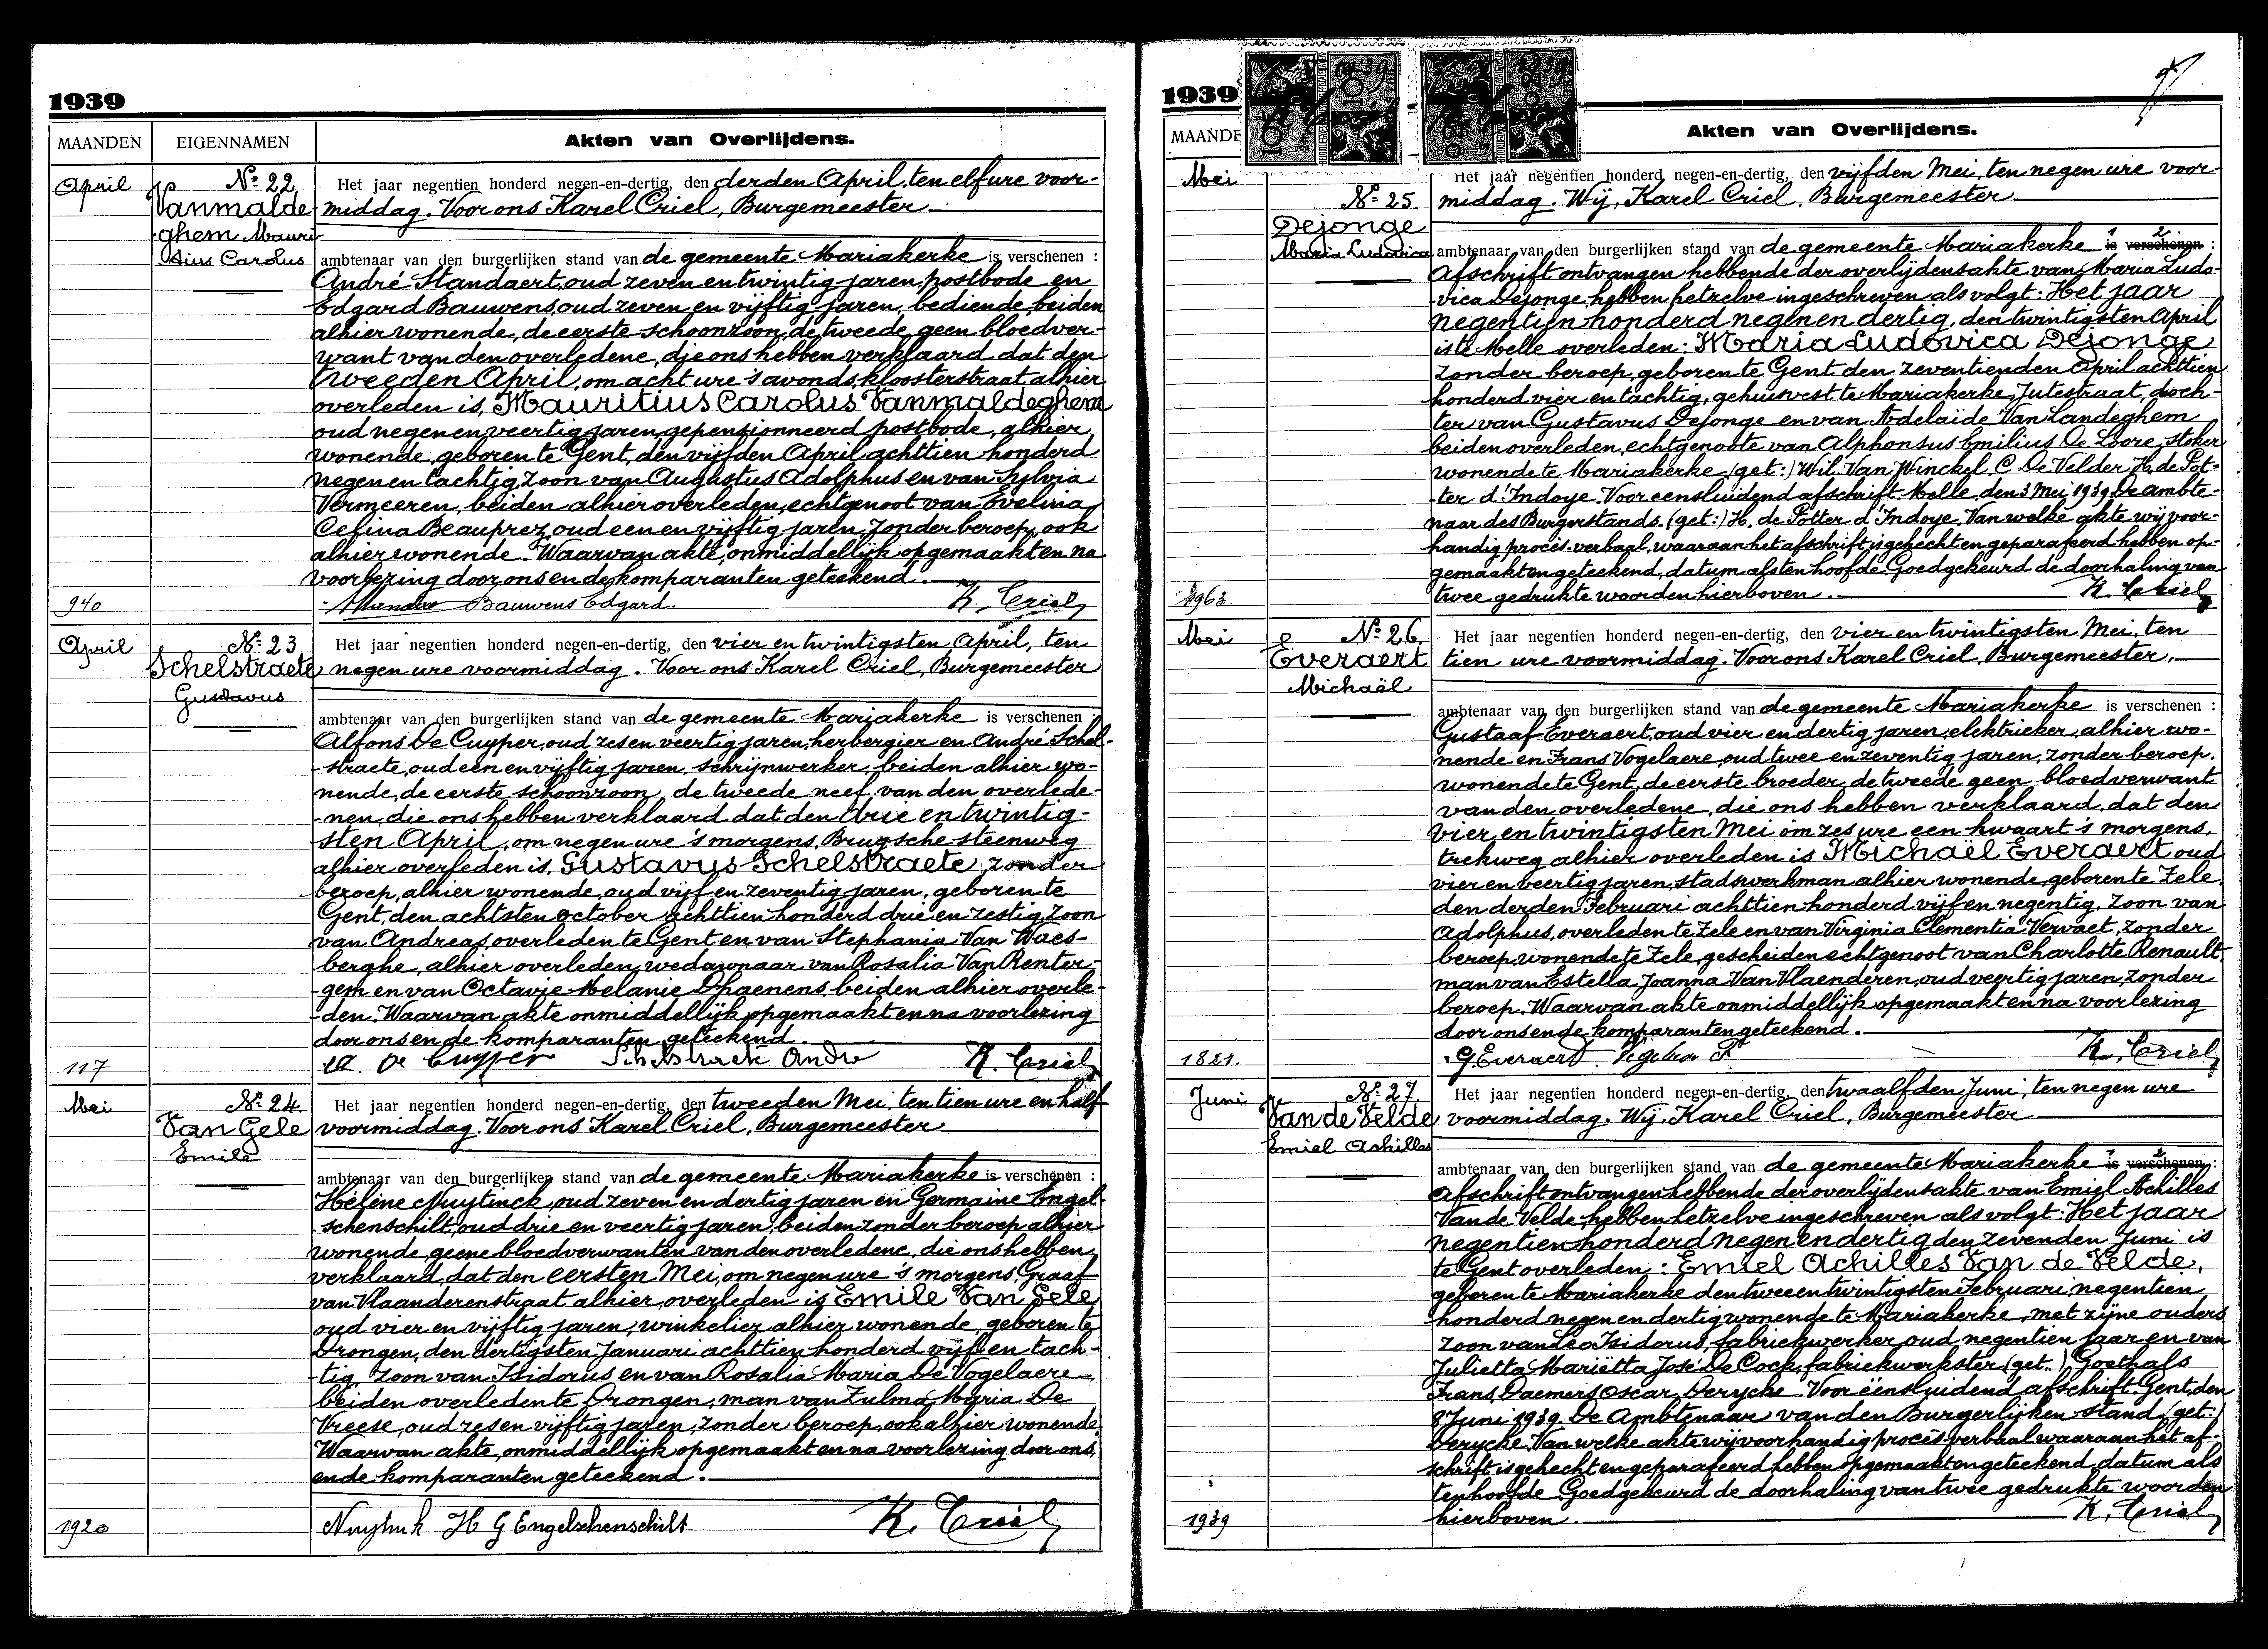 1939
MAANDEN
EIGENNAMEN
Akten van Overlijdens.
April
Nº 22
Vanmalde-
ghem Mauri-
tius Carolus
Het jaar negentien honderd negen-en-dertig, den derden April, ten elf ure voor-
middag. Voor ons Karel Criel, Burgemeester
ambtenaar van den burgerlijken stand van de gemeente Mariakerke is verschenen :
André Standaert, oud zeven en twintig jaren, postbode en
Edgard Bauwens, oud zeven en vijftig jaren, bediende, beiden
alhier wonende, de eerste schoonzoon, de tweede geen bloedver-
want van den overledene, die ons hebben verklaard dat den
tweeden April, om acht ure 's avonds, kloosterstraat alhier
overleden is, Mauritius Carolus Vanmaldeghem
oud negen en veertig jaren, gepensionneerd postbode, alhier
wonende, geboren te Gent, den vijfden April achttien honderd
negen en tachtig, zoon van Augustus Adolphus en van Sylvia
Vermeeren, beiden alhier overleden, echtgenoot van Evelina
Celina Beauprez, oud een en vijftig jaren, zonder beroep, ook
alhier wonende. Waarvan akte, onmiddellijk opgemaakt en na
voorlezing door ons en de komparanten geteekend.
940
Bauwens Edgard.
K. Criel
April
Nº 23
Schelstraete
Gustavus
Het jaar negentien honderd negen-en-dertig, den vier en twintigsten April, ten
negen ure voormiddag. Voor ons Karel Criel, Burgemeester
ambtenaar van den burgerlijken stand van de gemeente Mariakerke is verschenen :
Alfons De Cuyper, oud zes en veertig jaren, herbergier en André Schel-
straete, oud een en vijftig jaren, schrijnwerker, beiden alhier wo-
nende, de eerste schoonzoon, de tweede neef van den overlede-
nen, die ons hebben verklaard dat den drie en twintig-
sten April, om negen ure 's morgens, Brugsche steenweg
alhier overleden is, Gustavus Schelstraete, zonder
beroep, alhier wonende, oud vijf en zeventig jaren, geboren te
Gent, den achtsten october achttien honderd drie en zestig, zoon
van Andreas, overleden te Gent en van Stephania Van Waes-
berghe, alhier overleden, weduwnaar van Rosalia Van Renter-
gem en van Octavie Melanie Dhaenens, beiden alhier overle-
den. Waarvan akte onmiddellijk opgemaakt en na voorlezing
door ons en de komparanten geteekend.
117
A. De Cuyper
Schelstraete André
K. Criel
Mei
Nº 24
Van Gele
Emile
Het jaar negentien honderd negen-en-dertig, den tweeden Mei, ten tien ure en half
voormiddag. Voor ons Karel Criel, Burgemeester
ambtenaar van den burgerlijken stand van de gemeente Mariakerke is verschenen :
Hélène Nuytinck, oud zeven en dertig jaren en Germaine Engel-
schenschilt, oud drie en veertig jaren, beiden zonder beroep alhier
wonende, geene bloedverwanten van den overledene, die ons hebben
verklaard, dat den eersten Mei, om negen ure 's morgens, Graaf
van Vlaanderenstraat alhier, overleden is Emile Van Gele
oud vier en vijftig jaren, winkelier alhier wonende, geboren te
Drongen, den dertigsten Januari achttien honderd vijf en tach-
tig, zoon van Isidorus en van Rosalia Maria De Vogelaere
beiden overleden te Drongen, man van Zulma Maria De
Vreese, oud zes en vijftig jaren, zonder beroep, ook alhier wonende.
Waarvan akte, onmiddellijk opgemaakt en na voorlezing door ons,
en de komparanten geteekend.
1920
Nuytinck H
G Engelschenschilt
K. Criel
1939
MAANDE
Akten van Overlijdens.
Mei
Nº 25
Dejonge
Maria Ludovica
Het jaar negentien honderd negen-en-dertig, den vijfden Mei, ten negen ure voor-
middag. Wij, Karel Criel, Burgemeester
ambtenaar van den burgerlijken stand van de gemeente Mariakerke is verschenen :
Afschrift ontvangen hebbende der overlijdensakte van Maria Ludo-
vica Dejonge, hebben hetzelve ingeschreven als volgt: Het jaar
negentien honderd negen en dertig, den twintigsten April
is te Melle overleden: Maria Ludovica Dejonge
zonder beroep, geboren te Gent den zeventienden April achttien
honderd vier en tachtig, gehuisvest te Mariakerke, Jutestraat, doch-
ter van Gustavus Dejonge en van Adelaïde Van Landeghem
beiden overleden, echtgenoote van Alphonsus Emilius De Loore, stoker
wonende te Mariakerke. (get:) Wil. Van Winckel, C. De Velder, H. de Pot-
ter d'Indoye. Voor eensluidend afschrift. Melle, den 3 Mei 1939. De ambte-
naar des Burgerstands. (get:) H. de Potter d'Indoye. Van welke akte wij voor-
handig procès-verbaal, waaraan het afschrift is gehecht en geparafeerd hebben op-
gemaakt en geteekend, datum als ten hoofde. Goedgekeurd de doorhaling van
twee gedrukte woorden hierboven.
1963.
K. Criel
Mei
Nº 26.
Everaert
Michaël
Het jaar negentien honderd negen-en-dertig, den vier en twintigsten Mei, ten
tien ure voormiddag. Voor ons Karel Criel, Burgemeester,
ambtenaar van den burgerlijken stand van de gemeente Mariakerke is verschenen :
Gustaaf Everaert, oud vier en dertig jaren, elektrieker, alhier wo-
nende en Frans Vogelaere, oud twee en zeventig jaren, zonder beroep,
wonende te Gent, de eerste broeder, de tweede geen bloedverwant
van den overledene, die ons hebben verklaard, dat den
vier en twintigsten Mei om zes ure een kwaart 's morgens,
trekweg alhier overleden is Michaël Everaert oud
vier en veertig jaren, stadswerkman alhier wonende, geboren te Zele,
den derden Februari achttien honderd vijf en negentig, zoon van
Adolphus, overleden te Zele en van Virginia Clementia Vervaet, zonder
beroep, wonende te Zele, gescheiden echtgenoot van Charlotte Renault
man van Estella Joanna Van Vlaenderen, oud veertig jaren, zonder
beroep. Waarvan akte onmiddellijk opgemaakt en na voorlezing
door ons en de komparanten geteekend.
1821.
G Everaert
K. Criel
Juni
Nº 27.
Van de Velde
Emiel Achilles
Het jaar negentien honderd negen-en-dertig, den twaalfden Juni, ten negen ure
voormiddag. Wij, Karel Criel, Burgemeester
ambtenaar van den burgerlijken stand van de gemeente Mariakerke is verschenen :
Afschrift ontvangen hebbende der overlijdensakte van Emiel Achilles
Van de Velde, hebben hetzelve ingeschreven als volgt: Het jaar
negentien honderd negen en dertig den zevenden Juni is
te Gent overleden: Emiel Achilles Van de Velde,
geboren te Mariakerke den twee en twintigsten Februari, negentien
honderd negen en dertig wonende te Mariakerke, met zijne ouders
zoon van Léo Isidorus, fabriekwerker, oud negentien jaar en van
Julietta Mariëtta José De Cock, fabriekwerkster. (get..) Goethals
Frans, Daemers Oscar, Derycke. Voor éensluidend afschrift. Gent, den
8 Juni 1939. De Ambtenaar van den Burgerlijken stand. (get:)
Derycke. Van welke akte wij voorhandig procès-verbaal waaraan het af-
schrift is gehecht en geparafeerd hebben opgemaakt en geteekend, datum als
ten hoofde. Goedgekeurd de doorhaling van twee gedrukte woorden
hierboven.
1939
K. Criel